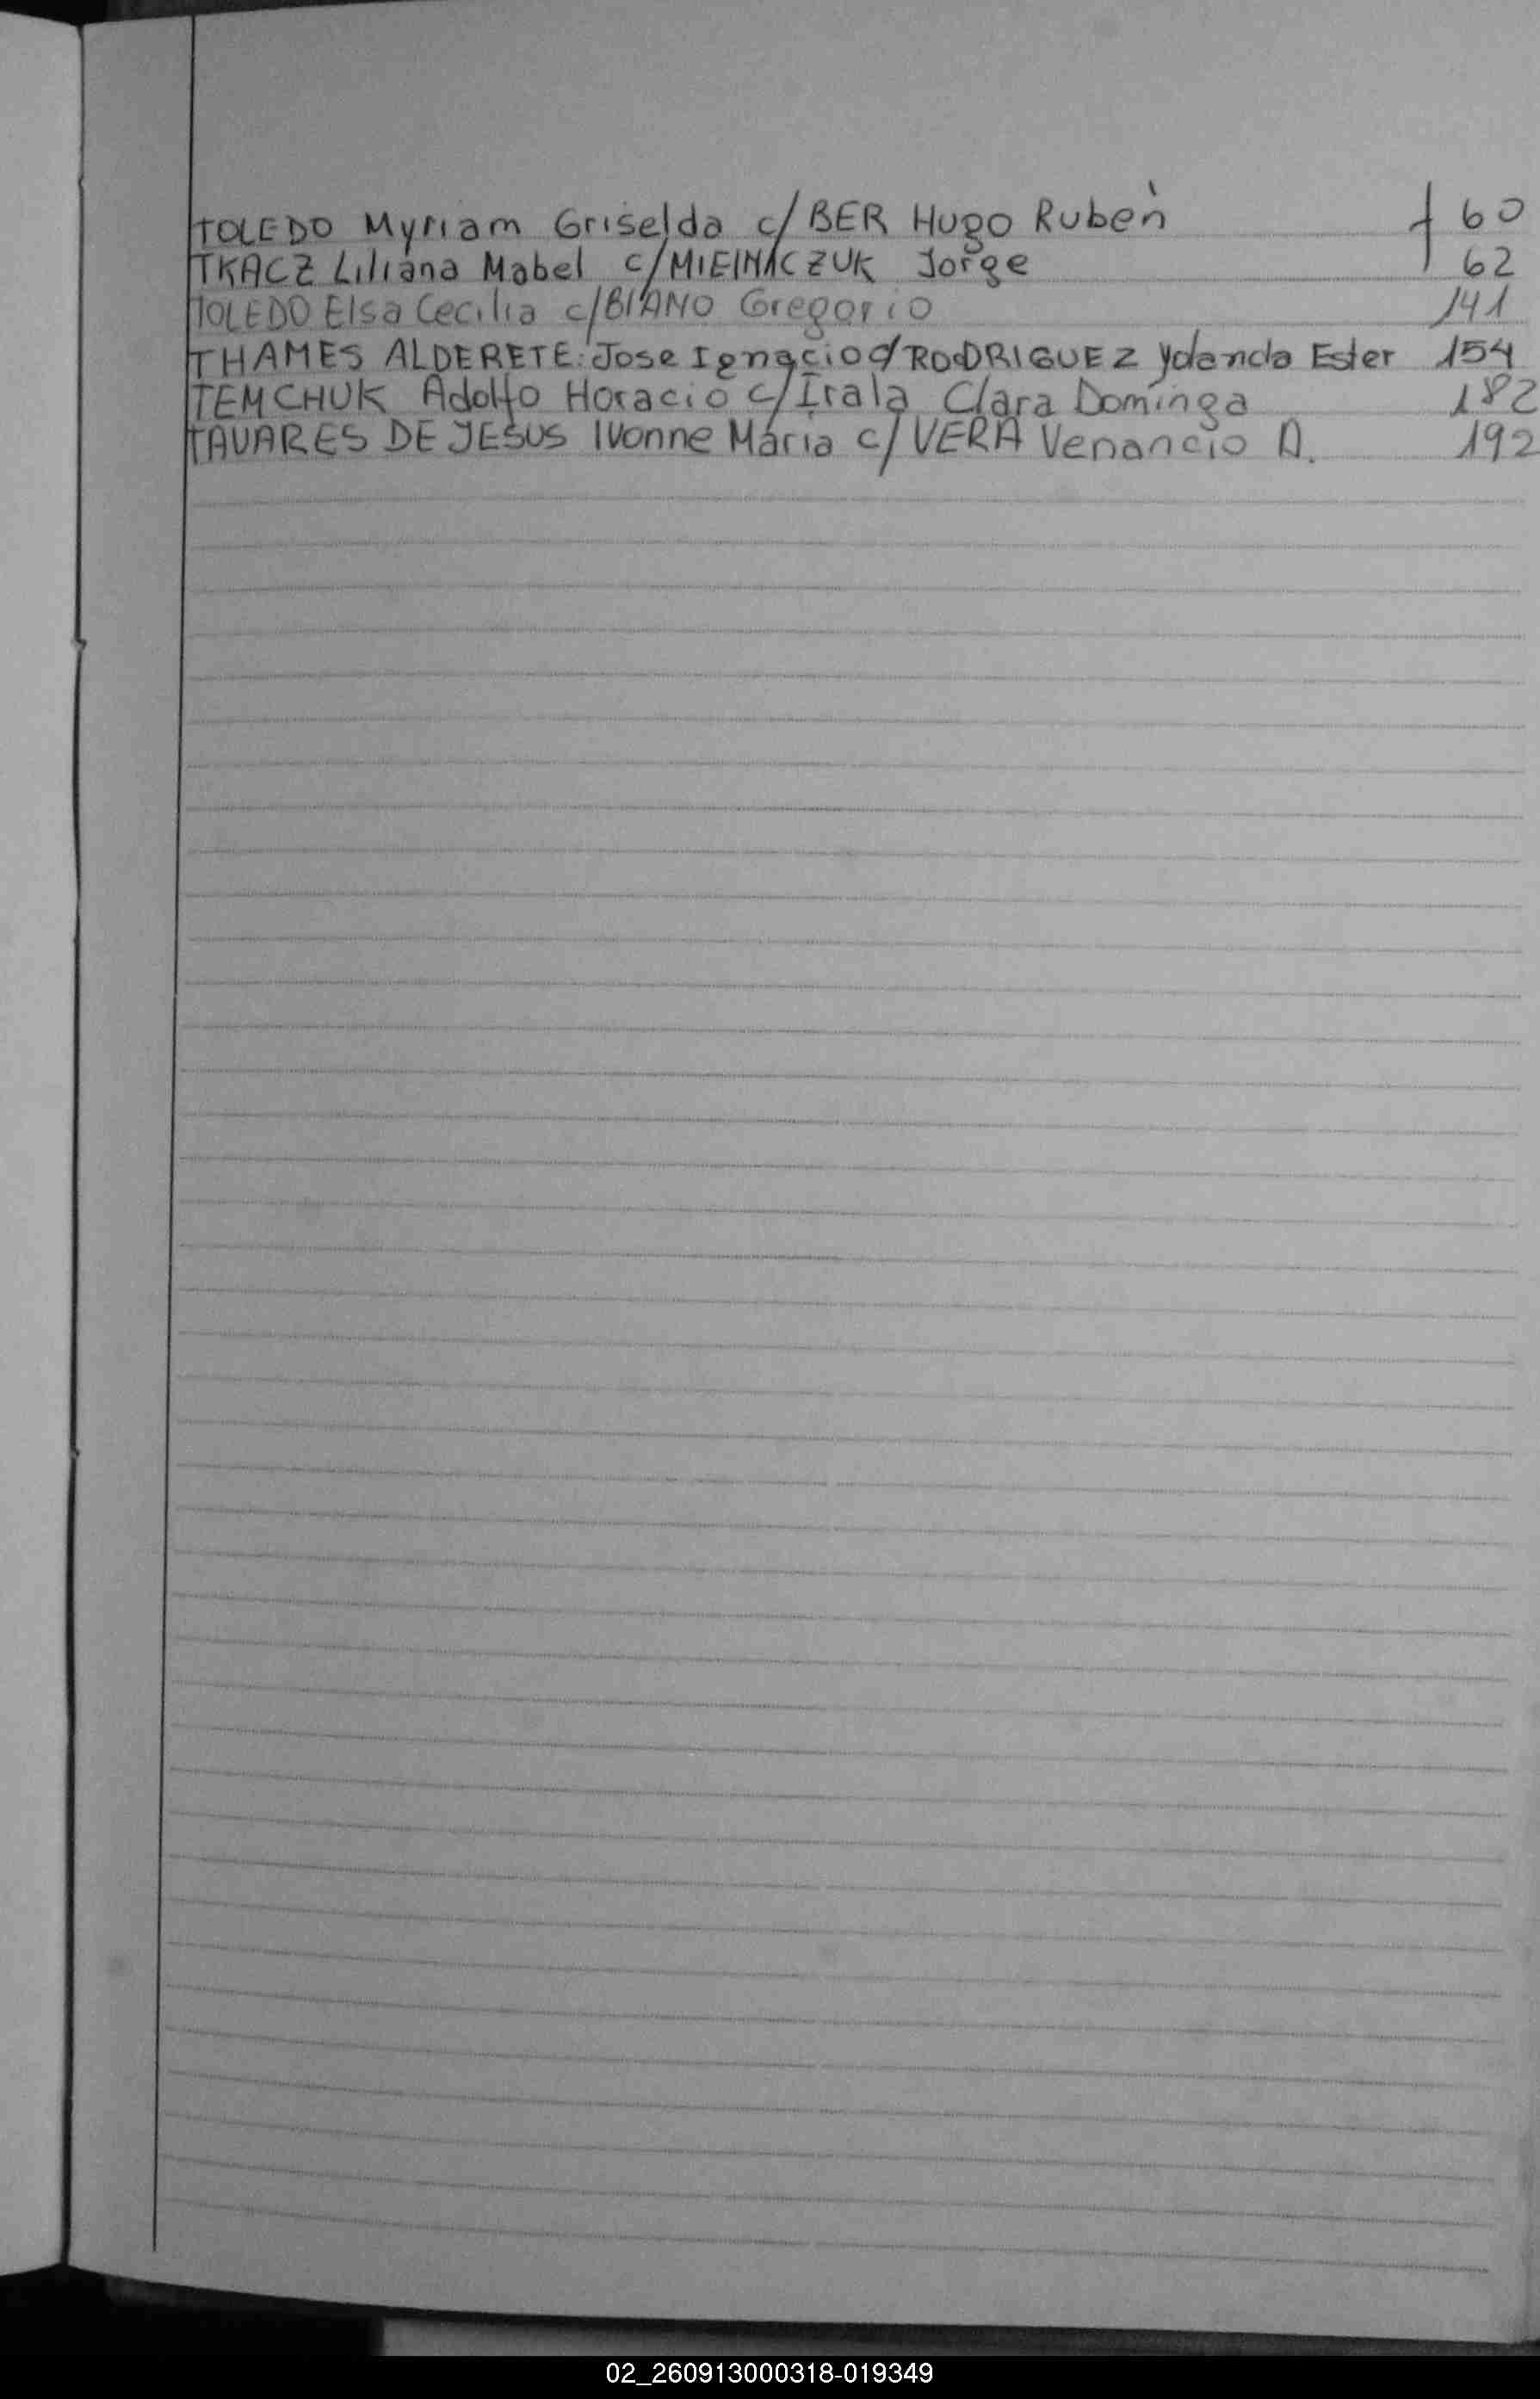 TOLEDO Myriam Griselda c/ BER Hugo Rubén f 60
TKACZ Liliana Mabel c/ MIEINACZUK Jorge 62
TOLEDO Elsa Cecilia c/ BIANO Gregorio 141
THAMES ALDERETE: Jose Ignacio c/ RODRIGUEZ Yolanda Ester 154
TEMCHUK Adolfo Horacio c/ Irala Clara Dominga 182
TAVARES DE JESUS IVonne Maria c/ VERA Venancio A. 192
02_260913000318-019349